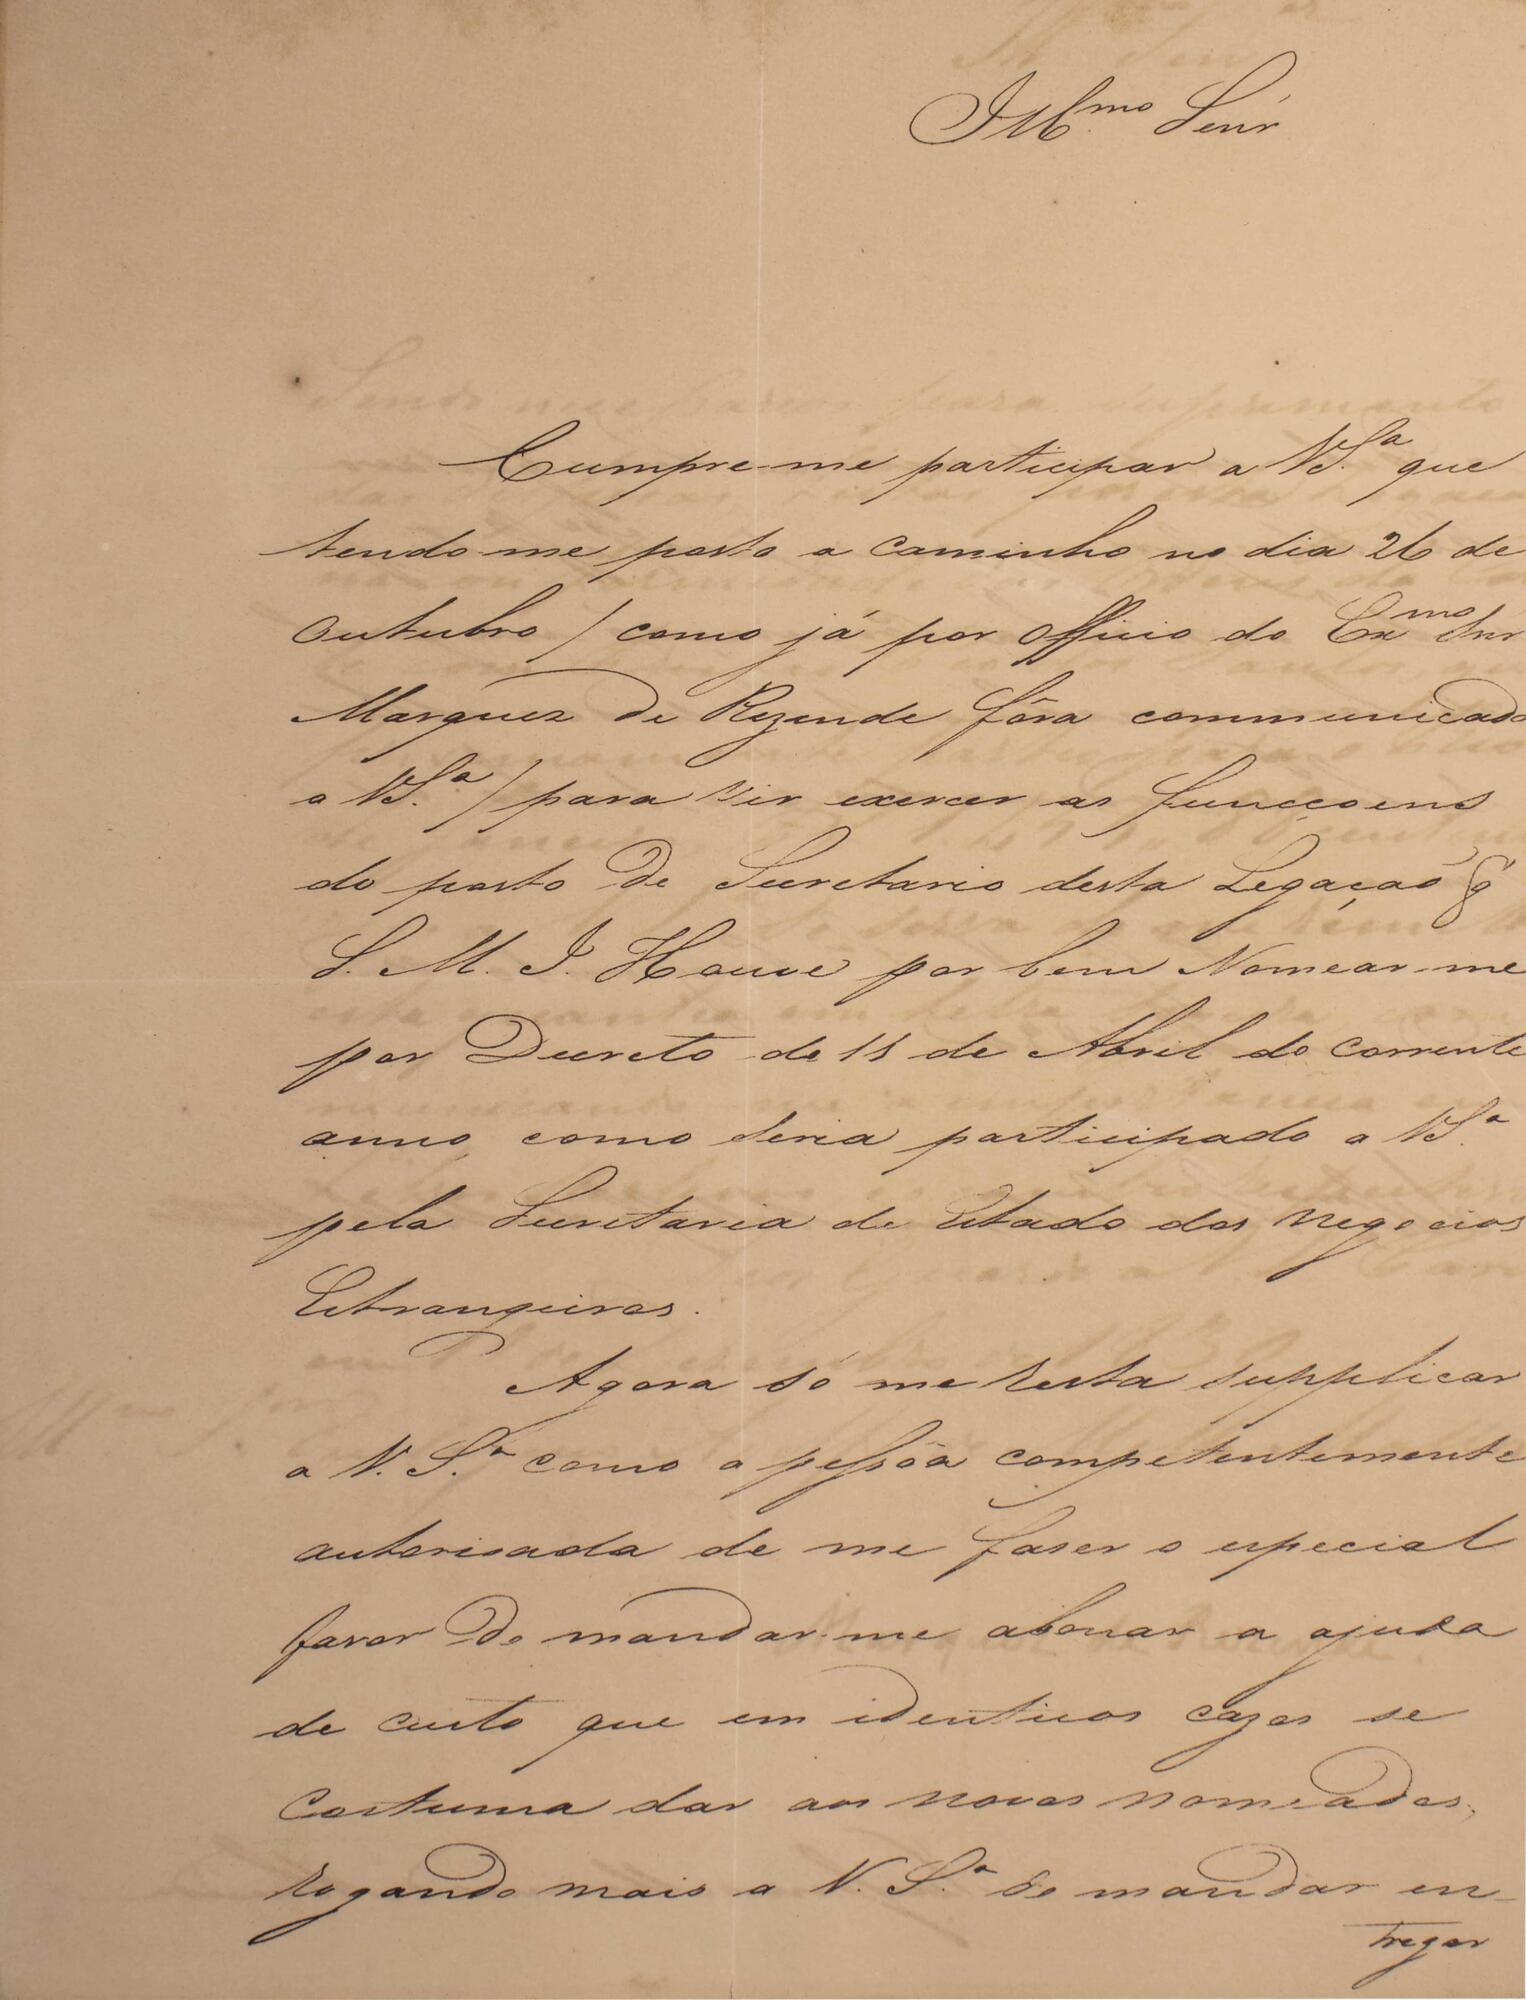 Illmo Senr
Cumpre-me participar a VS.a que
tendo-me posto a caminho no dia 26 de
Outubro / como já por Officio do Exmo Snr
Marquez de Rezende fôra communicado
a VS.a / para vir exercer as funcçoens
do posto de Secretario desta Legação q
S. M. I. Houve por bem Nomear-me
por Decreto de 11 de Abril do corrente
anno, como seria participado a VS.a
pela Secretaria de Estado dos Negocios
Estrangeiros.
Agora só me resta supplicar
a V. S.a como a pessôa competentemente
autorisada de me faser o especial
favor de mandar-me abonar a ajuda
de custo que em identicos cazos se
Costuma dar aos novos nomeados;
rogando mais a V. S.a de mandar en-
tregar